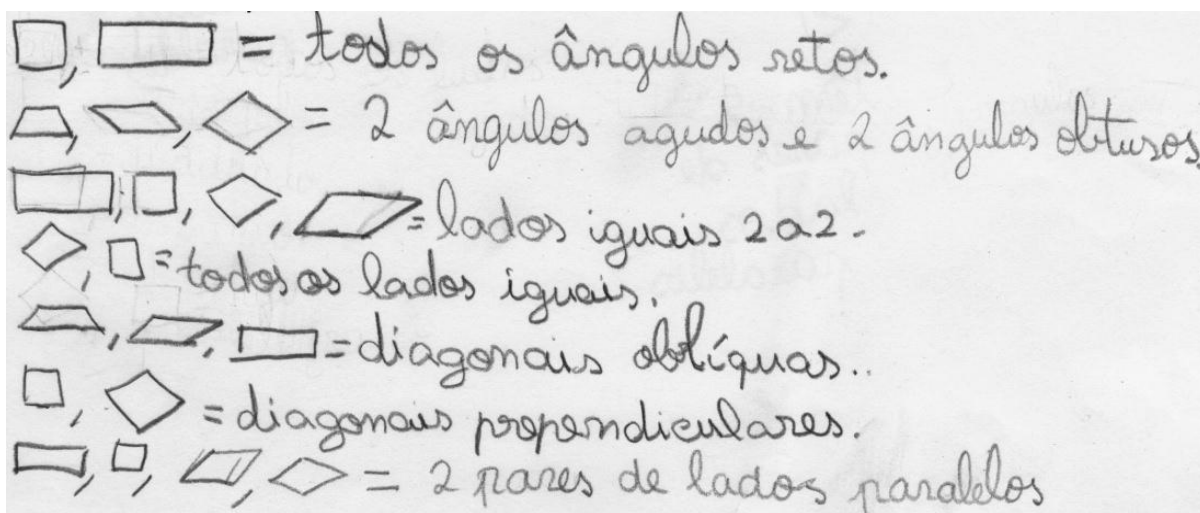 = todos os ângulos retos.
= 2 ângulos agudos e 2 ângulos obtusos
= lados iguais 2 a 2.
= todos os lados iguais.
= diagonais oblíquas..
= diagonais prependiculares.
= 2 pares de lados paralelos